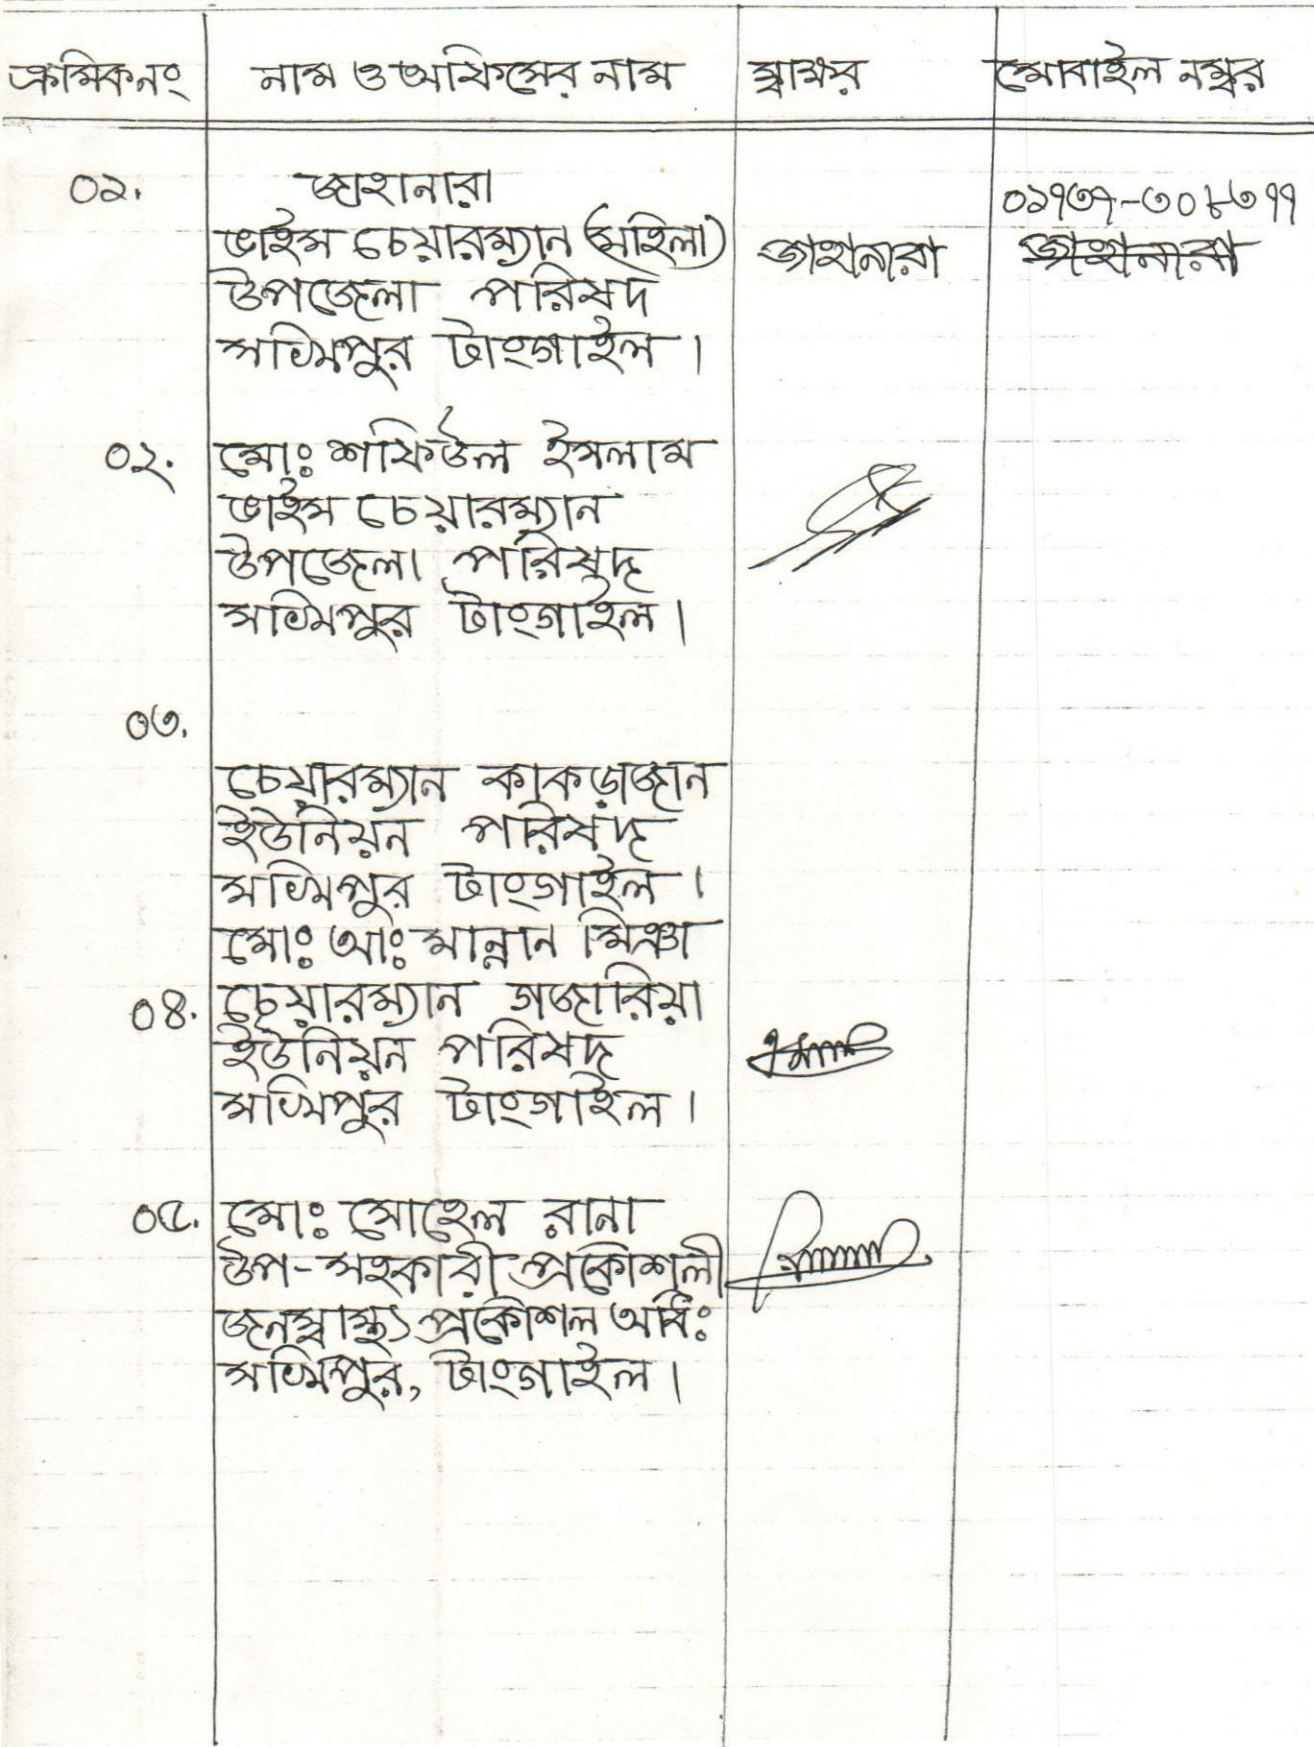 ক্রমিক নং নাম ও অফিসের নাম স্বাক্ষর মোবাইল নম্বর
০১. জাহানারা
ভাইস চেয়ারম্যান (মহিলা) জাহানারা
উপজেলা পরিষদ
সখিপুর টাংগাইল।
০২. মোঃ শফিউল ইসলাম
ভাইস চেয়ারম্যান
উপজেলা পরিষদ
সখিপুর টাংগাইল।
০৩.
চেয়ারম্যান কাকড়াজান
ইউনিয়ন পরিষদ
সখিপুর টাংগাইল।
মোঃ আঃ মান্নান মিঞা
০৪. চেয়ারম্যান গজারিয়া
ইউনিয়ন পরিষদ
সখিপুর টাংগাইল।
০৫. মোঃ সোহেল রানা
উপ-সহকারী প্রকৌশলী
জনস্বাস্থ্য প্রকৌশল অধিঃ
সখিপুর, টাংগাইল।